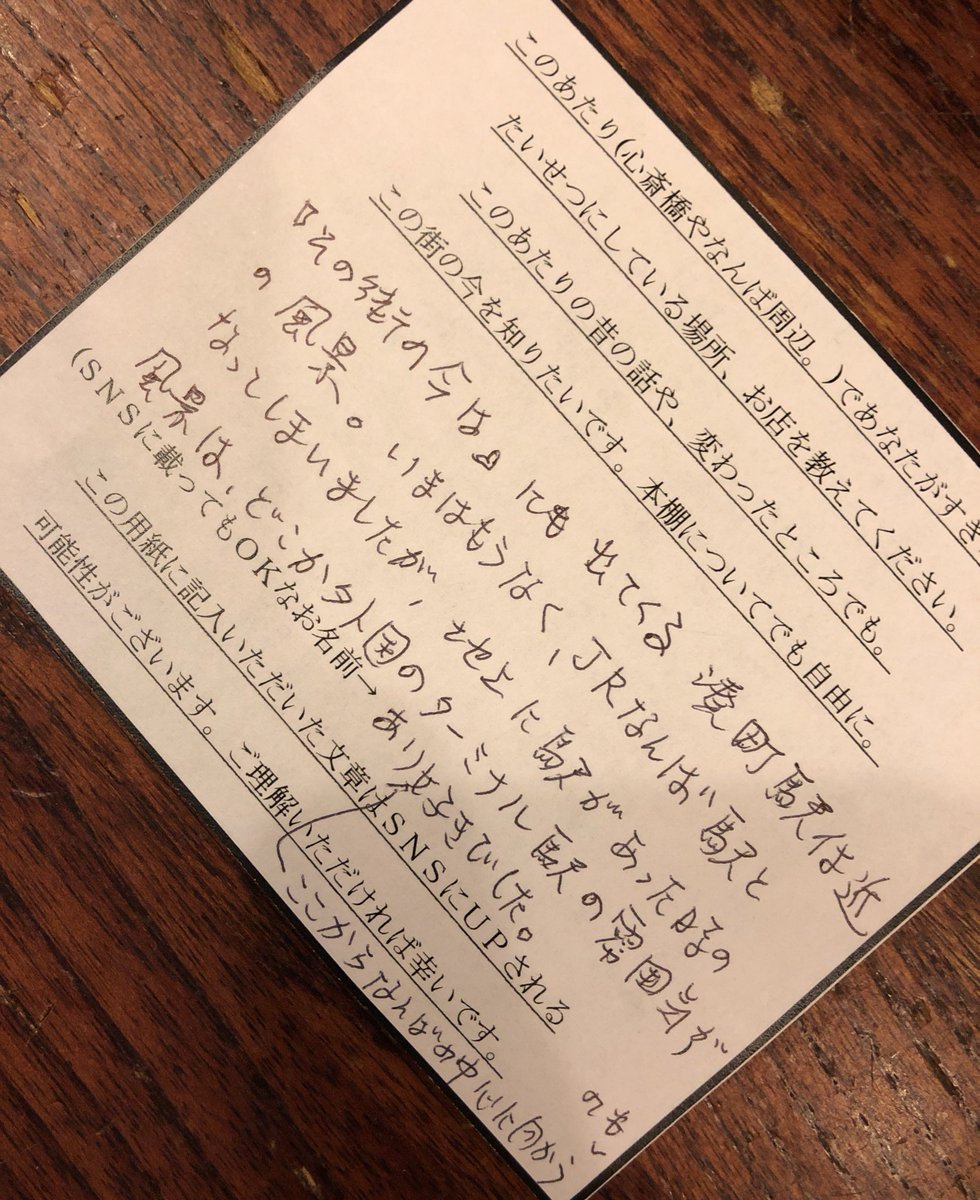 このあたり(心斎橋やなんば周辺。)であなたがすき
たいせつにしている場所、お店を教えてください。
このあたりの昔の話や、変わったところでも。
この街の今を知りたいです。本棚についてでも自由に。
『その街の今は』にも出てくる湊町駅付近
の風景。いまはもうなく、JRなんば駅と
なってしまいましたが、地上に駅があった時の
風景は、どこか外国のターミナル駅の雰囲気が
あり好きでした。
(SNSに載ってもOKなお名前→
この用紙に記入いただいた文章はSNSにUPされる
可能性がございます。ご理解いただければ幸いです。
(ここからなんばの中心に向かう
のも